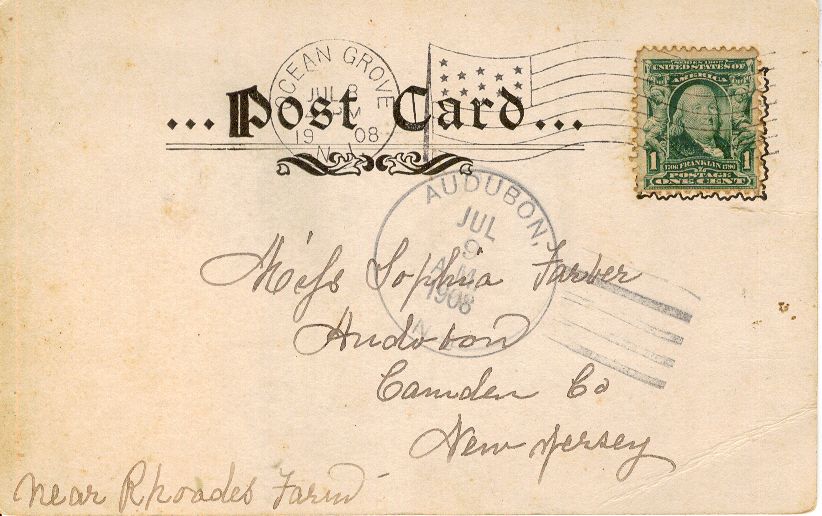 OCEAN GROVE
JUL 8
PM
19 08
N.J.
...Post Card...
SERIES 1902
UNITED STATES OF
AMERICA
1 1706 FRANKLIN 1790 1
POSTAGE
ONE CENT
AUDUBON,
JUL
9
A.M.
1908
N.
Miss Sophia Farber
Audobon
Camden Co
New Jersey
near Rhoades Farm